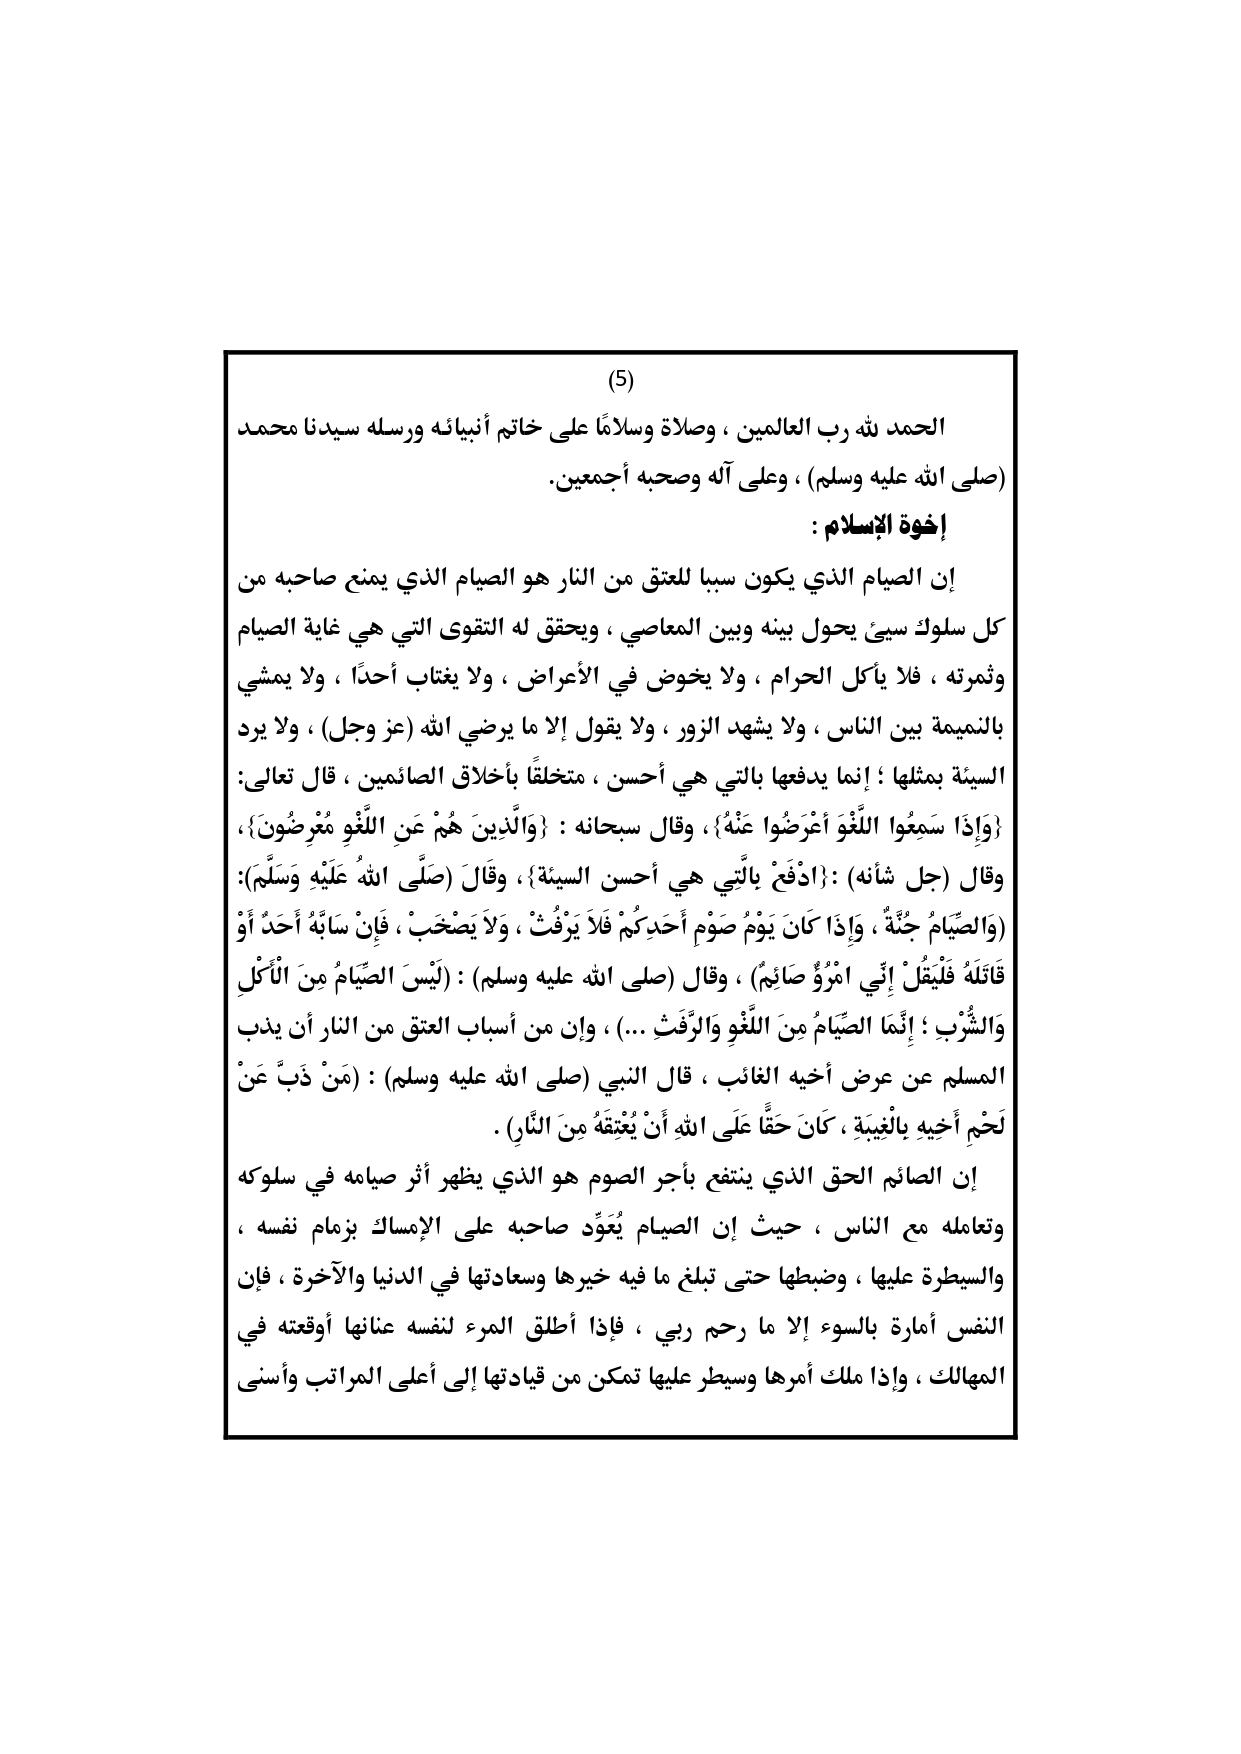 (5)
الحمد لله رب العالمين ، وصلاة وسلامًا على خاتم أنبيائه ورسله سيدنا محمد
(صلى الله عليه وسلم) ، وعلى آله وصحبه أجمعين.
إخوة الإسلام :
إن الصيام الذي يكون سببا للعتق من النار هو الصيام الذي يمنع صاحبه من
كل سلوك سيئ يحول بينه وبين المعاصي ، ويحقق له التقوى التي هي غاية الصيام
وثمرته ، فلا يأكل الحرام ، ولا يخوض في الأعراض ، ولا يغتاب أحدًا ، ولا يمشي
بالنميمة بين الناس ، ولا يشهد الزور ، ولا يقول إلا ما يرضي الله (عز وجل) ، ولا يرد
السيئة بمثلها ؛ إنما يدفعها بالتي هي أحسن ، متخلقًا بأخلاق الصائمين ، قال تعالى:
{وَإِذَا سَمِعُوا اللَّغْوَ أَعْرَضُوا عَنْهُ}، وقال سبحانه : {وَالَّذِينَ هُمْ عَنِ اللَّغْوِ مُعْرِضُونَ}،
وقال (جل شأنه) :{ادْفَعْ بِالَّتِي هي أحسن السيئة}، وقَالَ (صَلَّى اللهُ عَلَيْهِ وَسَلَّمَ):
(وَالصِّيَامُ جُنَّةٌ ، وَإِذَا كَانَ يَوْمُ صَوْمِ أَحَدِكُمْ فَلاَ يَرْفُثْ ، وَلاَ يَصْخَبْ ، فَإِنْ سَابَّهُ أَحَدٌ أَوْ
قَاتَلَهُ فَلْيَقُلْ إِنِّي امْرُؤٌ صَائِمٌ) ، وقال (صلى الله عليه وسلم) : (لَيْسَ الصِّيَامُ مِنَ الْأَكْلِ
وَالشُّرْبِ ؛ إِنَّمَا الصِّيَامُ مِنَ اللَّغْوِ وَالرَّفَثِ ...) ، وإن من أسباب العتق من النار أن يذب
المسلم عن عرض أخيه الغائب ، قال النبي (صلى الله عليه وسلم) : (مَنْ ذَبَّ عَنْ
لَحْمِ أَخِيهِ بِالْغِيبَةِ ، كَانَ حَقًّا عَلَى اللهِ أَنْ يُعْتِقَهُ مِنَ النَّارِ) .
إن الصائم الحق الذي ينتفع بأجر الصوم هو الذي يظهر أثر صيامه في سلوكه
وتعامله مع الناس ، حيث إن الصيام يُعَوِّد صاحبه على الإمساك بزمام نفسه ،
والسيطرة عليها ، وضبطها حتى تبلغ ما فيه خيرها وسعادتها في الدنيا والآخرة ، فإن
النفس أمارة بالسوء إلا ما رحم ربي ، فإذا أطلق المرء لنفسه عنانها أوقعته في
المهالك ، وإذا ملك أمرها وسيطر عليها تمكن من قيادتها إلى أعلى المراتب وأسنى